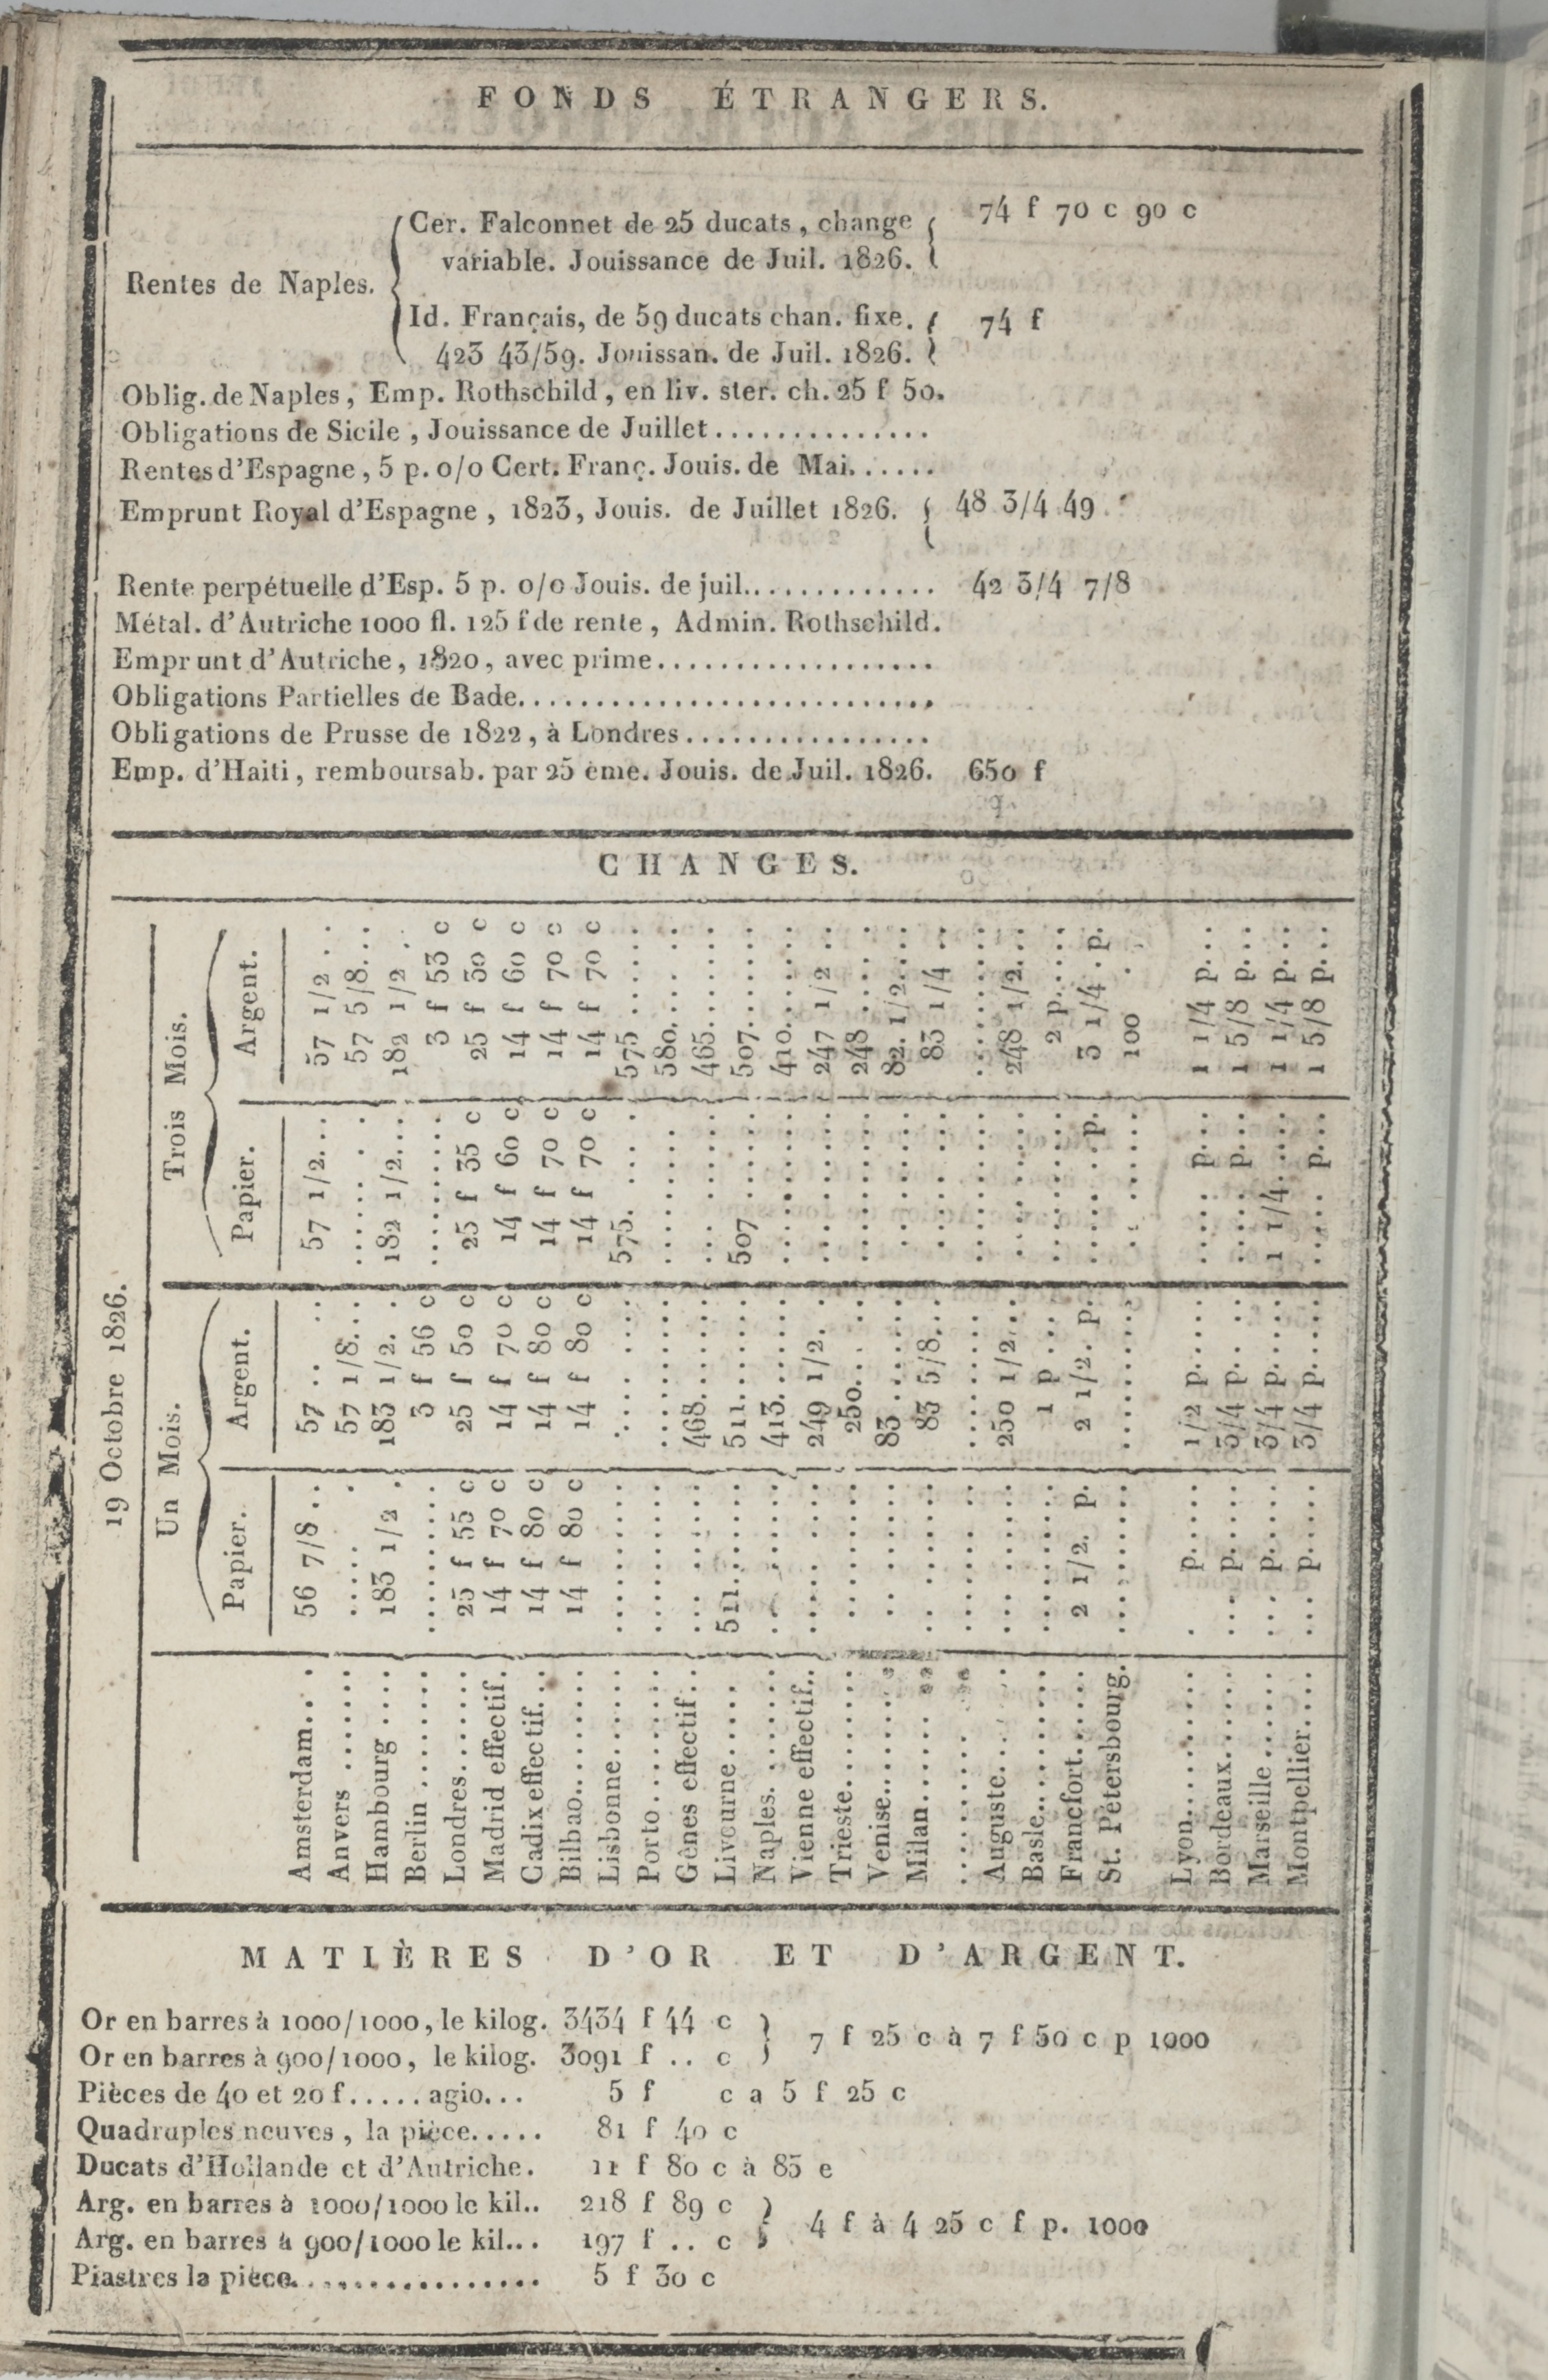 FONDS ÉTRANGERS.
Rentes de Naples.
Cer. Falconnet de 25 ducats, change 74 f 70 c 90 c
variable. Jouissance de Juil. 1826.
Id. Français, de 59 ducats chan. fixe. 74 f
423 43/59. Jouissan. de Juil. 1826.
Oblig. de Naples, Emp. Rothschild, en liv. ster. ch. 25 f 50.
Obligations de Sicile, Jouissance de Juillet..............
Rentes d'Espagne, 5 p. o/o Cert. Franç. Jouis. de Mai......
Emprunt Royal d'Espagne, 1823, Jouis. de Juillet 1826. 48 3/4 49
Rente perpétuelle d'Esp. 5 p. o/o Jouis. de juil.............. 42 3/4 7/8
Métal. d'Autriche 1000 fl. 125 f de rente, Admin. Rothschild.
Emprunt d'Autriche, 1820, avec prime..................
Obligations Partielles de Bade...........................
Obligations de Prusse de 1822, à Londres................
Emp. d'Haiti, remboursab. par 25 ème. Jouis. de Juil. 1826. 650 f
CHANGES.
19 Octobre 1826.
Un Mois. Trois Mois.
Papier. Argent. Papier. Argent.
Amsterdam.... 56 7/8.. 57 .. .. 57 1/2... 57 1/2 ..
Anvers ....... ..... . 57 1/8... ..... . . 57 5/8...
Hambourg .... 183 1/2 . 183 1/2. . 182 1/2... 182 1/2 .
Berlin ........ ........ 3 f 56 c ........ 3 f 53 c
Londres....... 25 f 55 c 25 f 50 c 25 f 35 c 25 f 30 c
Madrid effectif.. 14 f 70 c 14 f 70 c 14 f 60 c 14 f 60 c
Cadix effectif... 14 f 80 c 14 f 80 c 14 f 70 c 14 f 70 c
Bilbao........ 14 f 80 c 14 f 80 c 14 f 70 c 14 f 70 c
Lisbonne....... ........ ........ 575. ... . 575 .....
Porto ......... ........ ........ ........ 580.... .
Gênes effectif... ........ 468....... ........ 465......
Livourne ..... 511....... 511....... 507 ...... 507......
Naples........ ........ 413...... ........ 410......
Vienne effectif.. ........ 249 1/2. . ........ 247 1/2 ..
Trieste........ ........ 250... . ........ 248 ....
Venise........ ........ 83 ..... ........ 82. 1/2...
Milan........ ........ 83 5/8... ........ 83 1/4 ..
........ ........ ........ ........ ........
Auguste.... .. ........ 250 1/2... ........ 248 1/2...
Basle......... ........ 1 p ... ........ 2 p.....
Francfort...... 2 1/2. p. 2 1/2. p. ..... . . p. 3 1/4 . p.
St. Pétersbourg. ........ ........ ........ 100 . .
Lyon......... . p..... 1/2 p..... .... p... 1 1/4 p...
Bordeaux...... ... p..... 3/4 p.. .. .... p... 1 5/8 p...
Marseille ...... ... p..... 3/4 p..... 1 1/4.... 1 1/4 p...
Montpellier.... ... p..... 3/4 p..... .... p... 1 5/8 p...
MATIÈRES D'OR ET D'ARGENT.
Or en barres à 1000/1000, le kilog. 3434 f 44 c
7 f 25 c à 7 f 50 c p 1000
Or en barres à 900/1000, le kilog. 3091 f .. c
Pièces de 40 et 20 f..... agio... 5 f c a 5 f 25 c
Quadruples neuves, la pièce..... 81 f 40 c
Ducats d'Hollande et d'Autriche. 11 f 80 c à 85 e
Arg. en barres à 1000/1000 le kil.. 218 f 89 c
4 f à 4 25 c f p. 1000
Arg. en barres à 900/1000 le kil... 197 f .. c
Piastres la pièce................. 5 f 30 c